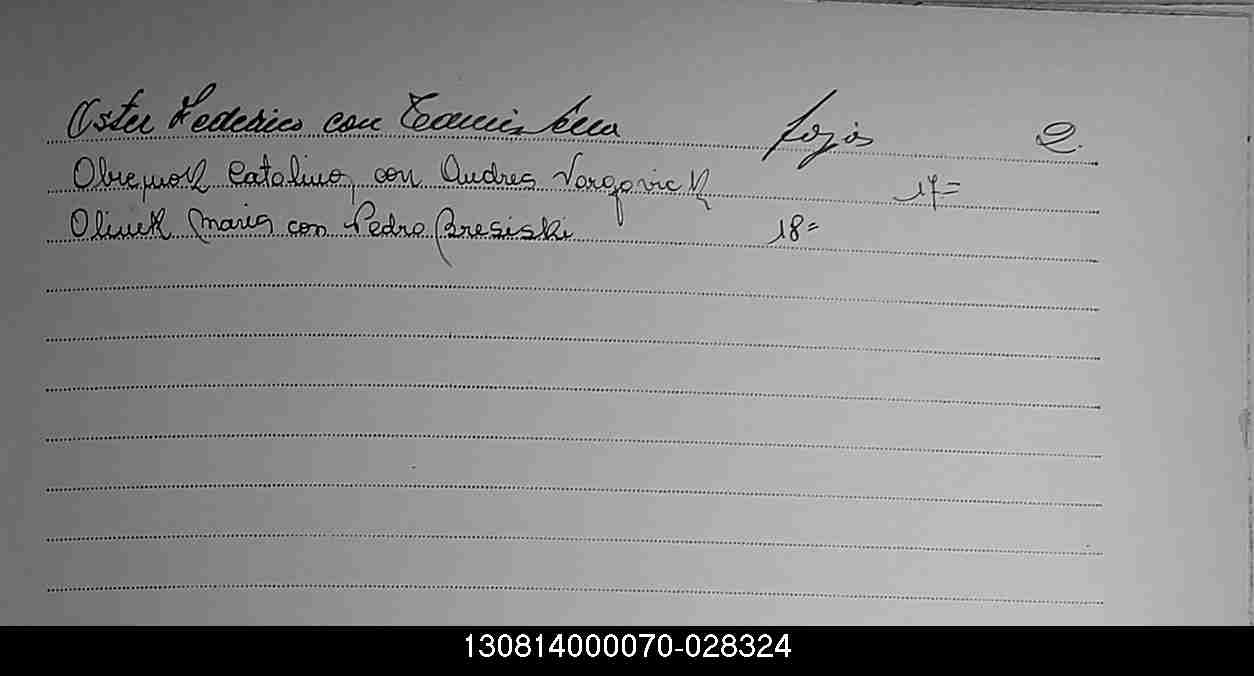 Oster Federico con fojas 2.
Catalina, con Andres Vorgovich 17=
Oliuk Maria con Pedro Bresiski 18=
130814000070-028324